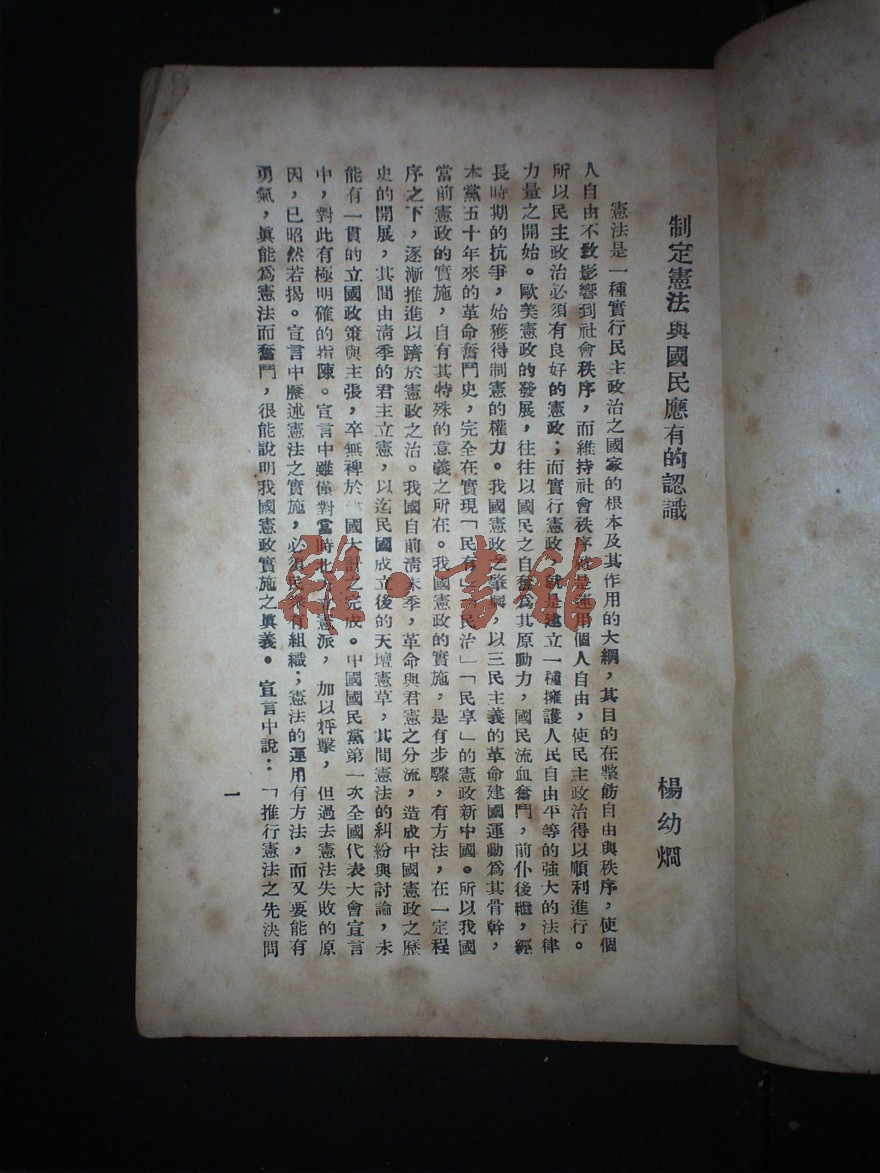 制定憲法與國民應有的認識
楊幼炯
憲法是一種實行民主政治之國家的根本及其作用的大綱，其目的在整飭自由與秩序，使個
人自由不致影響到社會秩序，而維持社會秩序就是運用個人自由，使民主政治得以順利進行。
所以民主政治必須有良好的憲政；而實行憲政，就是建立一種擁護人民自由平等的強大的法律
力量之開始。歐美憲政的發展，往往以國民之自奮為其原動力，國民流血奮鬥，前仆後繼，經
長時期的抗爭，始獲得制憲的權力。我國憲政之肇興，以三民主義的革命建國運動為其骨幹，
本黨五十年來的革命奮鬥史，完全在實現「民有」「民治」「民享」的憲政新中國。所以我國
當前憲政的實施，自有其特殊的意義之所在。我國憲政的實施，是有步驟，有方法，在一定程
序之下，逐漸推進以躋於憲政之治。我國自前清末季，革命與君憲之分流，造成中國憲政之歷
史的開展，其間由清季的君主立憲，以迄民國成立後的天壇憲草，其間憲法的糾紛與討論，未
能有一貫的立國政策與主張，卒無裨於國大計之完成。中國國民黨第一次全國代表大會宣言
中，對此有極明確的指陳。宣言中雖僅對當時北方立憲派，加以抨擊，但過去憲法失敗的原
因，已昭然若揭。宣言中歷述憲法之實施，必須民眾有組織；憲法的運用有方法，而又要能有
勇氣，眞能爲憲法而奮鬥，很能說明我國憲政實施之眞義。宣言中說：「推行憲法之先決問
一
雜·書館